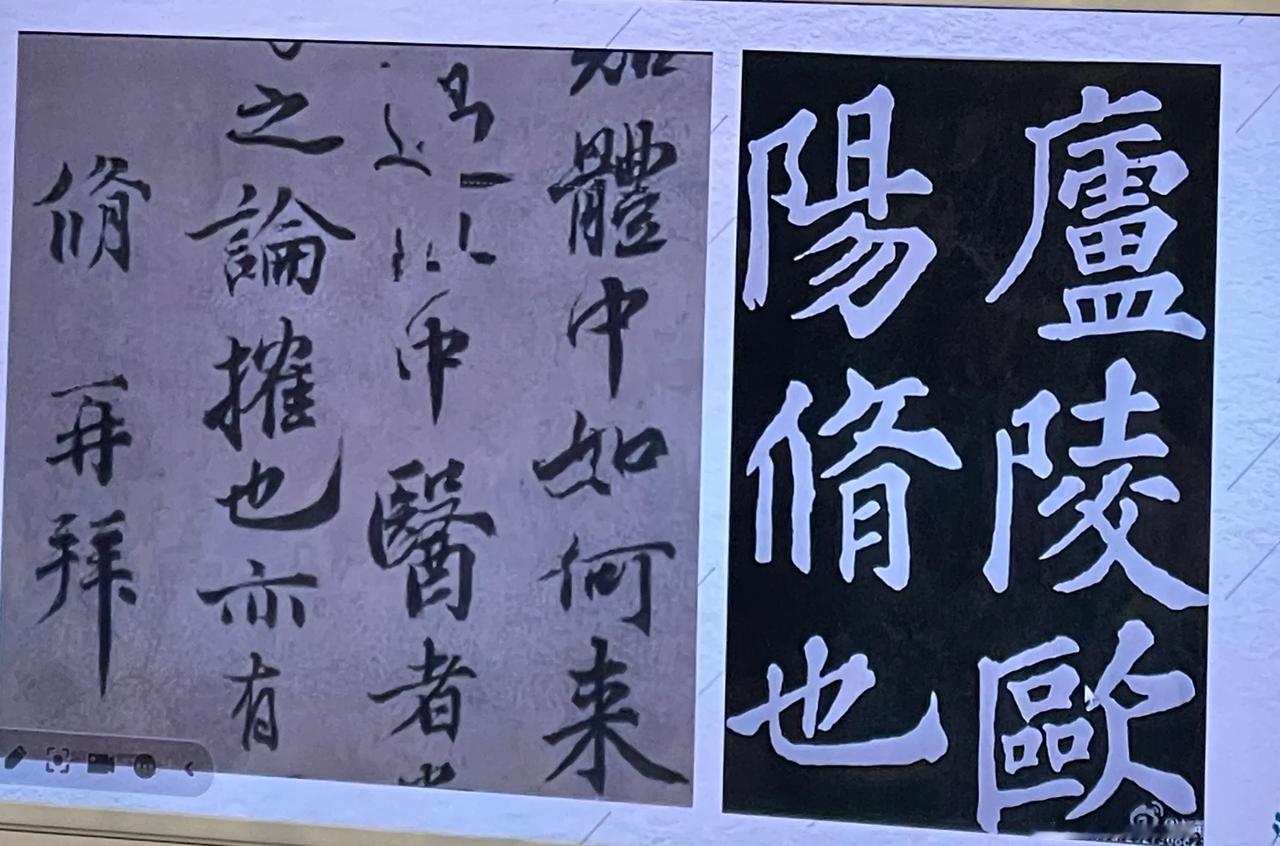 廬陵歐
陽脩也
體中如何来
醫者
之論搉也亦有
脩再拜